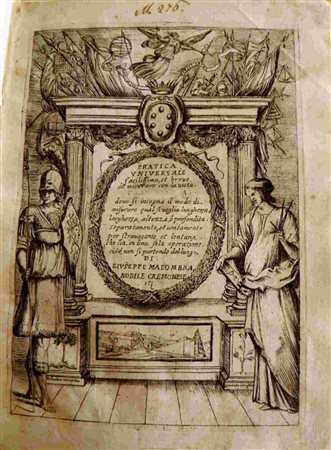 M. 276.
PRATICA
VNIVERSALE
facilissima, et breue
di misurare con la vista.
doue si insegna il modo di
misurare qual si uoglia lunghezza,
larghezza, altezza, ò profondità
separatamente, et unitamente
per strauagante et lontana
che sia, in una sola operatione
cioè, non si partendo dal luogo.
DI
GIVSEPPE MALOMBRA
NOBILE CREMONESE